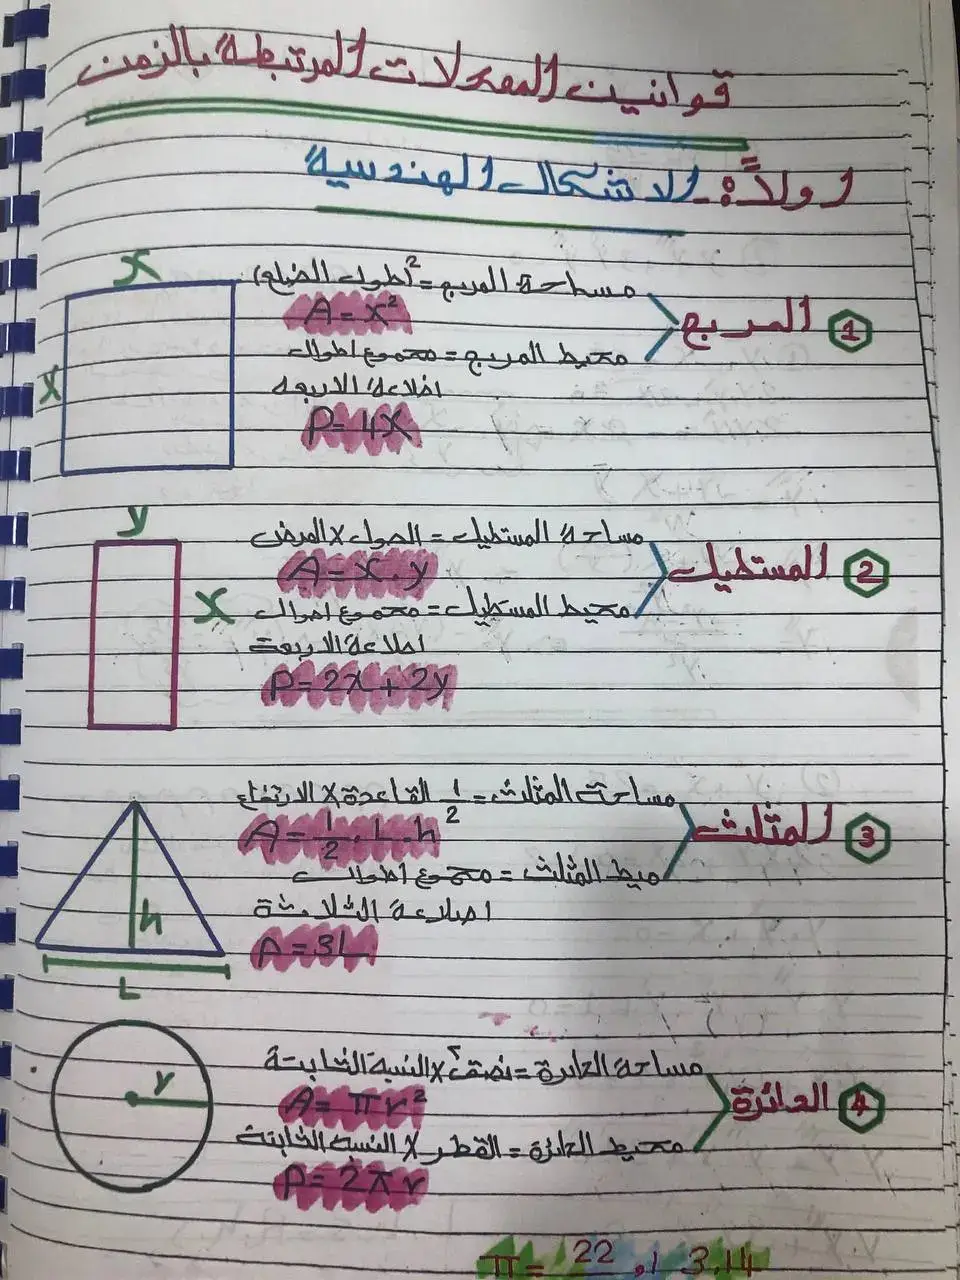 قوانين المعدلات المرتبطة بالزمن
اولاً:- الاشكال الهندسية
1 المربع
مساحة المربع = (طول الضلع)²
A = x²
محيط المربع = مجموع اطوال
اضلاعة الاربعه
P = 4x
x
x
2 المستطيل
مساحة المستطيل = الطول × العرض
A = x . y
محيط المستطيل = مجموع اطوال
اضلاعة الاربعة
P = 2x + 2y
y
x
3 المثلث
مساحة المثلث = 1/2 القاعدة × الارتفاع
A = 1/2 . L . h
محيط المثلث = مجموع اطوال
اضلاعة الثلاثة
P = 3L
h
L
4 الدائرة
مساحة الدائرة = نصف² × النسبة الثابتة
A = π r²
محيط الدائرة = القطر × النسبة الثابتة
P = 2 π r
r
π = 22 او 3.14